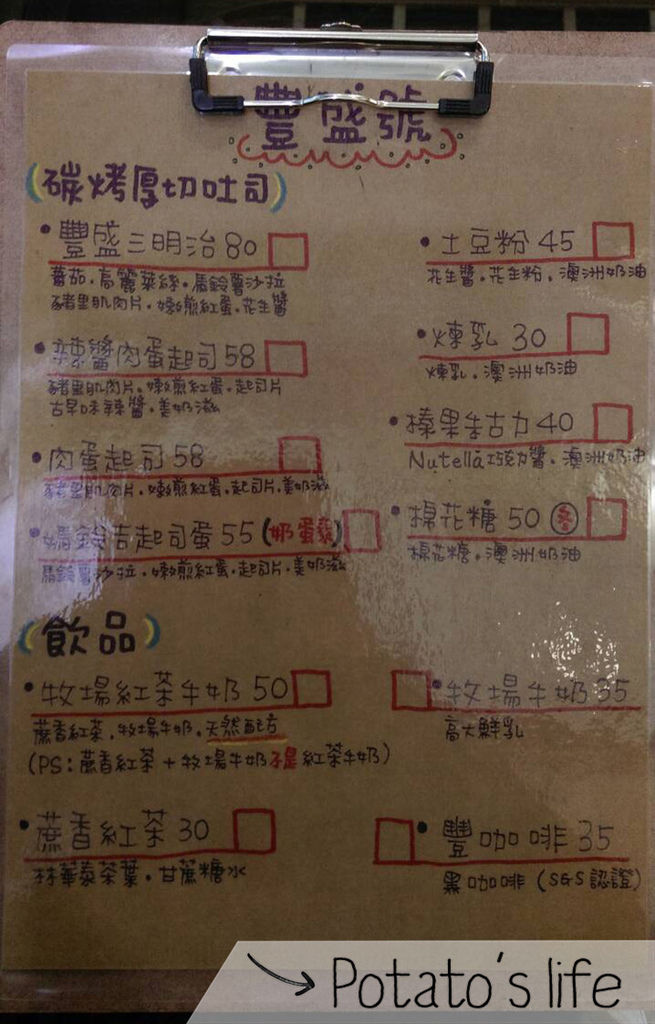 豐盛號
(碳烤厚切吐司)
•豐盛三明治 80
蕃茄.高麗菜絲.馬鈴薯沙拉
豬里肌肉片.嫩煎紅蛋.花生醬
•辣醬肉蛋起司 58
豬里肌肉片.嫩煎紅蛋.起司片
古早味辣醬.美奶滋
•肉蛋起司 58
豬里肌肉片.嫩煎紅蛋.起司片.美奶滋
•媽鈴吉起司蛋 55 (奶蛋素)
馬鈴薯沙拉.嫩煎紅蛋.起司片.美奶滋
•土豆粉 45
花生醬.花生粉.澳洲奶油
•煉乳 30
煉乳.澳洲奶油
•榛果朱古力 40
Nutella巧克力醬.澳洲奶油
•棉花糖 50
棉花糖.澳洲奶油
(飲品)
•牧場紅茶牛奶 50
蔗香紅茶.牧場牛奶.天然配方
(PS:蔗香紅茶+牧場牛奶不是紅茶牛奶)
•牧場牛奶 35
高大鮮乳
•蔗香紅茶 30
林華泰茶葉.甘蔗糖水
•豐咖啡 35
黑咖啡 (SGS認證)
Potato's life